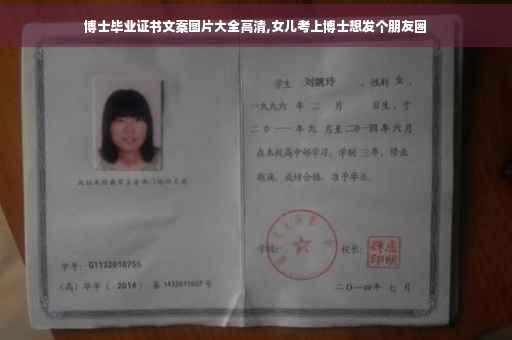 博士毕业证书文案图片大全高清,女儿考上博士想发个朋友圈
学生 刘婉玲 ,性别 女 ,
一九九六 年 二 月 日生,于
二〇一一年九 月至二〇一四年六月
在本校高中部学习,学制 三年,修业
期满,成绩合格,准予毕业。
学校: 校长:
二〇一四年 七 月
学号: G1132010755
(高)毕字( 2014 )第 1432011027 号